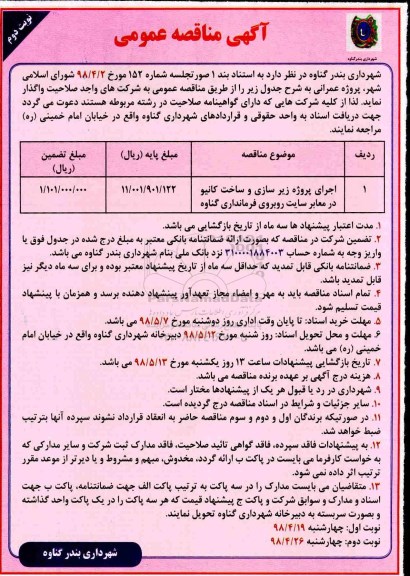 نوبت دوم
آگهی مناقصه عمومی
شهرداری بندر گناوه
شهرداری بندر گناوه در نظر دارد به استناد بند ۱ صورتجلسه شماره ۱۵۲ مورخ ۹۸/۴/۲ شورای اسلامی
شهر، پروژه عمرانی به شرح جدول زیر را از طریق مناقصه عمومی به شرکت های واجد صلاحیت واگذار
نماید. لذا از کلیه شرکت هایی که دارای گواهینامه صلاحیت در رشته مربوطه هستند دعوت می گردد
جهت دریافت اسناد به واحد حقوقی و قراردادهای شهرداری گناوه واقع در خیابان امام خمینی (ره)
مراجعه نمایند.
ردیف موضوع مناقصه مبلغ پایه (ریال) مبلغ تضمین (ریال)
۱ اجرای پروژه زیر سازی و ساخت کانیو در معابر سایت روبروی فرمانداری گناوه ۱۱/۰۰۱/۹۰۱/۱۲۲ ۱/۱۰۱/۰۰۰/۰۰۰
۱. مدت اعتبار پیشنهاد ها سه ماه از تاریخ بازگشایی می باشد.
۲. تضمین شرکت در مناقصه که بصورت ارائه ضمانتنامه بانکی معتبر به مبلغ درج شده در جدول فوق یا
واریز وجه به شماره حساب ۳۱۰۰۰۰۱۸۸۴۰۰۳ نزد بانک ملی بنام شهرداری بندر گناوه می باشد.
۳. ضمانتنامه بانکی قابل تمدید که حداقل سه ماه از تاریخ پیشنهاد معتبر بوده و برای سه ماه دیگر نیز
قابل تمدید باشد.
۴. تمام اسناد مناقصه باید به مهر و امضاء مجاز تعهدآور پیشنهاد دهنده برسد و همزمان با پیشنهاد
قیمت تسلیم شود.
۵. مهلت خرید اسناد: تا پایان وقت اداری روز دوشنبه مورخ ۹۸/۵/۷ می باشد.
۶. مهلت و محل تحویل اسناد: روز شنبه مورخ ۹۸/۵/۱۲ دبیرخانه شهرداری گناوه واقع در خیابان امام
خمینی (ره) می باشد.
۷. تاریخ بازگشایی پیشنهادات ساعت ۱۳ روز یکشنبه مورخ ۹۸/۵/۱۳ می باشد.
۸. هزینه درج آگهی بر عهده برنده مناقصه می باشد.
۹. شهرداری در رد یا قبول هر یک از پیشنهادها مختار است.
۱۰. سایر جزئیات و شرایط در اسناد مناقصه درج گردیده است.
۱۱. در صورتیکه برندگان اول و دوم و سوم مناقصه حاضر به انعقاد قرارداد نشوند سپرده آنها بترتیب
ضبط خواهد شد.
۱۲. به پیشنهادات فاقد سپرده، فاقد گواهی تائید صلاحیت، فاقد مدارک ثبت شرکت و سایر مدارکی که
به خواست کارفرما می بایست در پاکت ب ارائه گردد، مخدوش، مبهم و مشروط و یا دیرتر از موعد مقرر
ترتیب اثر داده نمی شود.
۱۳. متقاضیان می بایست مدارک را در سه پاکت به ترتیب پاکت الف جهت ضمانتنامه، پاکت ب جهت
اسناد و مدارک و سوابق شرکت و پاکت ج پیشنهاد قیمت که هر سه پاکت را در یک پاکت واحد گذاشته
و بصورت سربسته به دبیرخانه شهرداری گناوه تحویل نمایند.
نوبت اول: چهارشنبه ۹۸/۴/۱۹
نوبت دوم: چهارشنبه ۹۸/۴/۲۶
شهرداری بندر گناوه